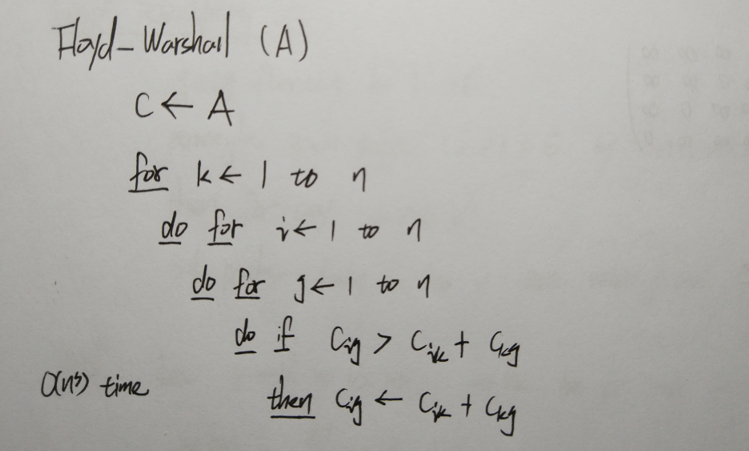 Floyd-Warshall (A)
C ← A
for k ← 1 to n
do for i ← 1 to n
do for j ← 1 to n
do if Cij > Cik + Ckj
O(n³) time then Cij ← Cik + Ckj